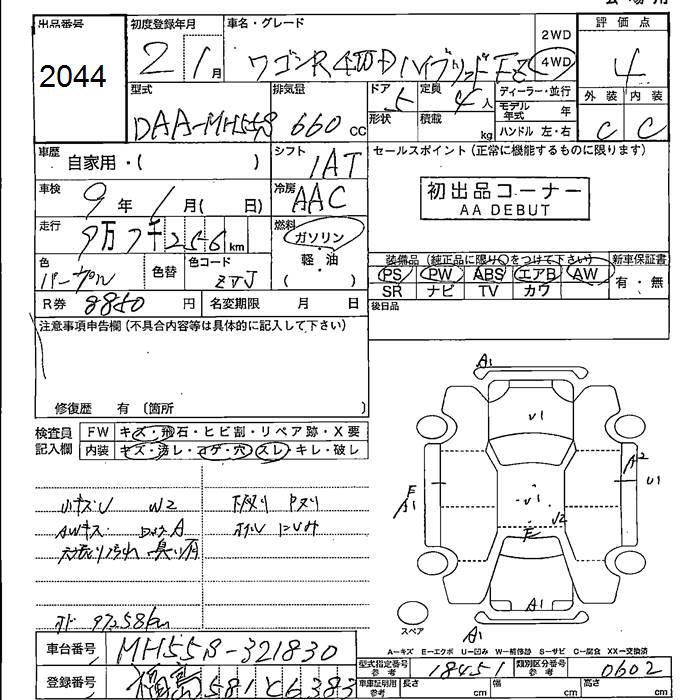 会場用
出品番号
2044
初度登録年月
2 / 1月
車名・グレード
ワゴンR 4WD ハイブリッド FZ
2WD
4WD
評価点
4
外装 内装
C C
型式
DAA-MH55S
排気量
660 cc
ドア
5
定員
4人
形状
積載
kg
ディーラー・並行
モデル年式 年
ハンドル 左・右
車歴
自家用・( )
シフト
IAT
セールスポイント(正常に機能するものに限ります)
初出品コーナー
AA DEBUT
車検
9年 1月( 日)
冷房
AAC
走行
9万7千256km
燃料
ガソリン
軽・油
( )
色
パープル
色替
色コード
ZVJ
装備品(純正品に限り○をつけて下さい)
PS PW ABS エアB AW
SR ナビ TV カワ
新車保証書
有・無
R券 8850円
名変期限 月 日
後日品
注意事項申告欄(不具合内容等は具体的に記入して下さい)
修復歴 有〔箇所 〕
検査員
記入欄
FW キズ・飛石・ヒビ割・リペア跡・X要
内装 キズ・汚レ・コゲ・穴・スレ・キレ・破レ
小キズU W2
AWキズ
A1
V1
V1
U2
E
A2
U1
E
A1
A1
A1
スペア
A-キズ E-エクボ U-凹み W-補修跡 S-サビ C-腐食 XX-交換済
オド 97258km
車台番号 MH55S-321830
登録番号 福島 581 と 6383
型式指定番号
参考
18451
類別区分番号
参考
0602
車庫証明用
参考
長さ cm 幅 cm 高さ cm